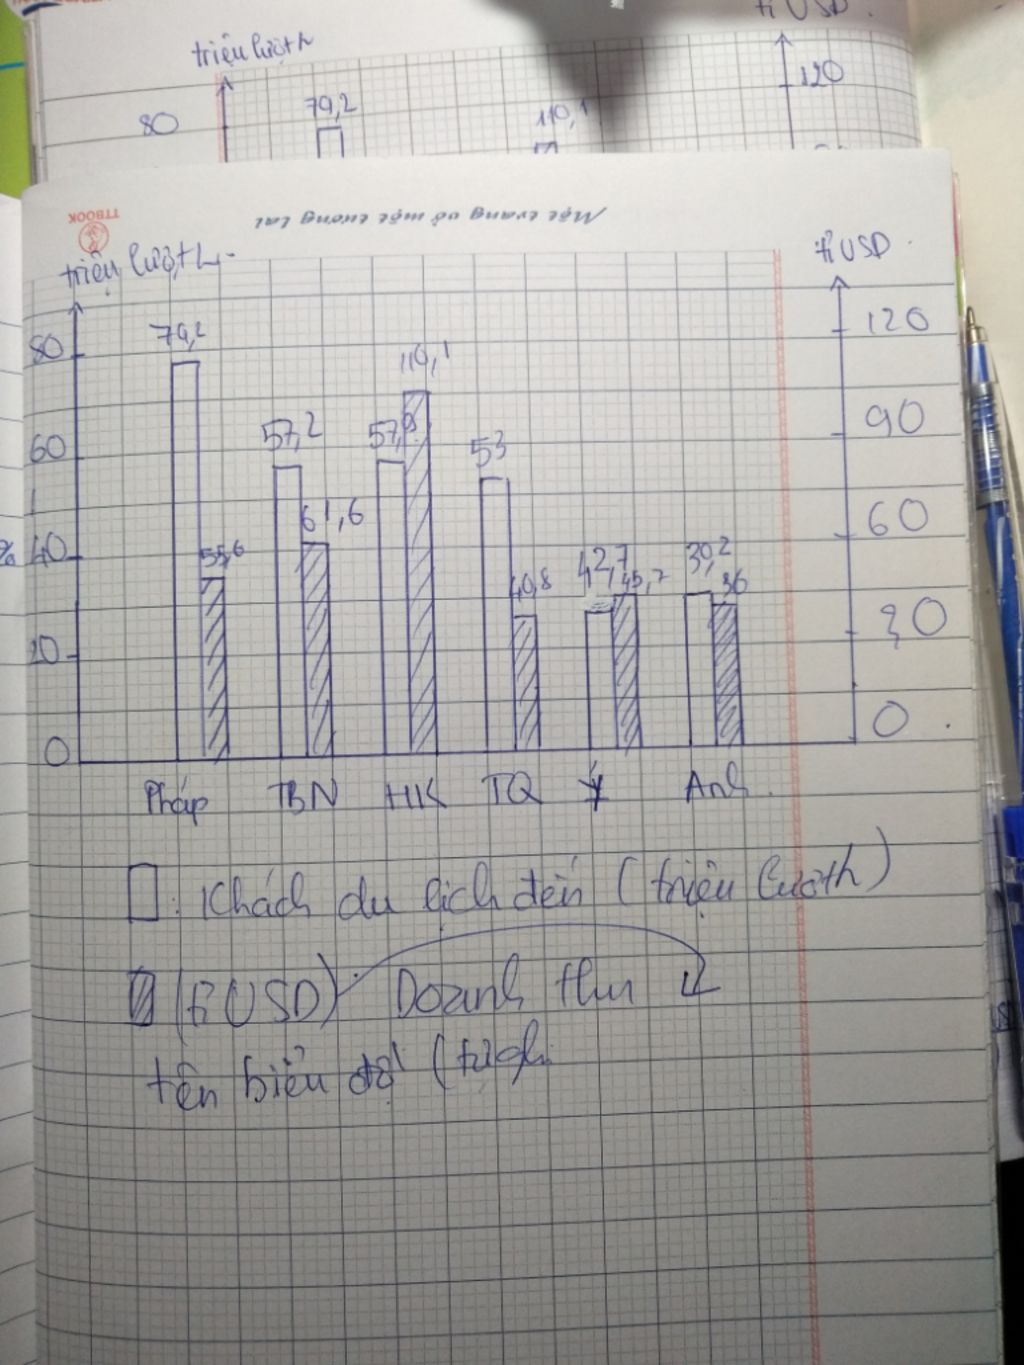 tỉ USD.
triệu lượt
120
79,2
80
110,1
TTBOOK
Một trang vở một tương lai
triệu lượt
tỉ USD
79,2
80
120
110,1
57,2
57,8
53
60
90
61,6
55,6
40
60
42,7
39,2
40,8
45,7
36
%
20
30
0
0
Pháp TBN HK TQ Ý Anh
: Khách du lịch đến (triệu lượt)
(tỉ USD) Doanh thu
tên biểu đồ (tự ghi